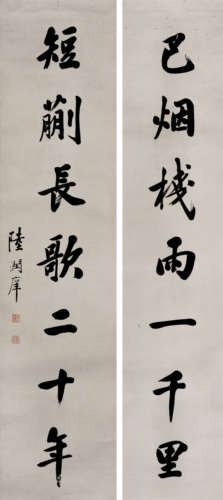 巴烟棧雨一千里
短蒯長歌二十年
陸潤庠